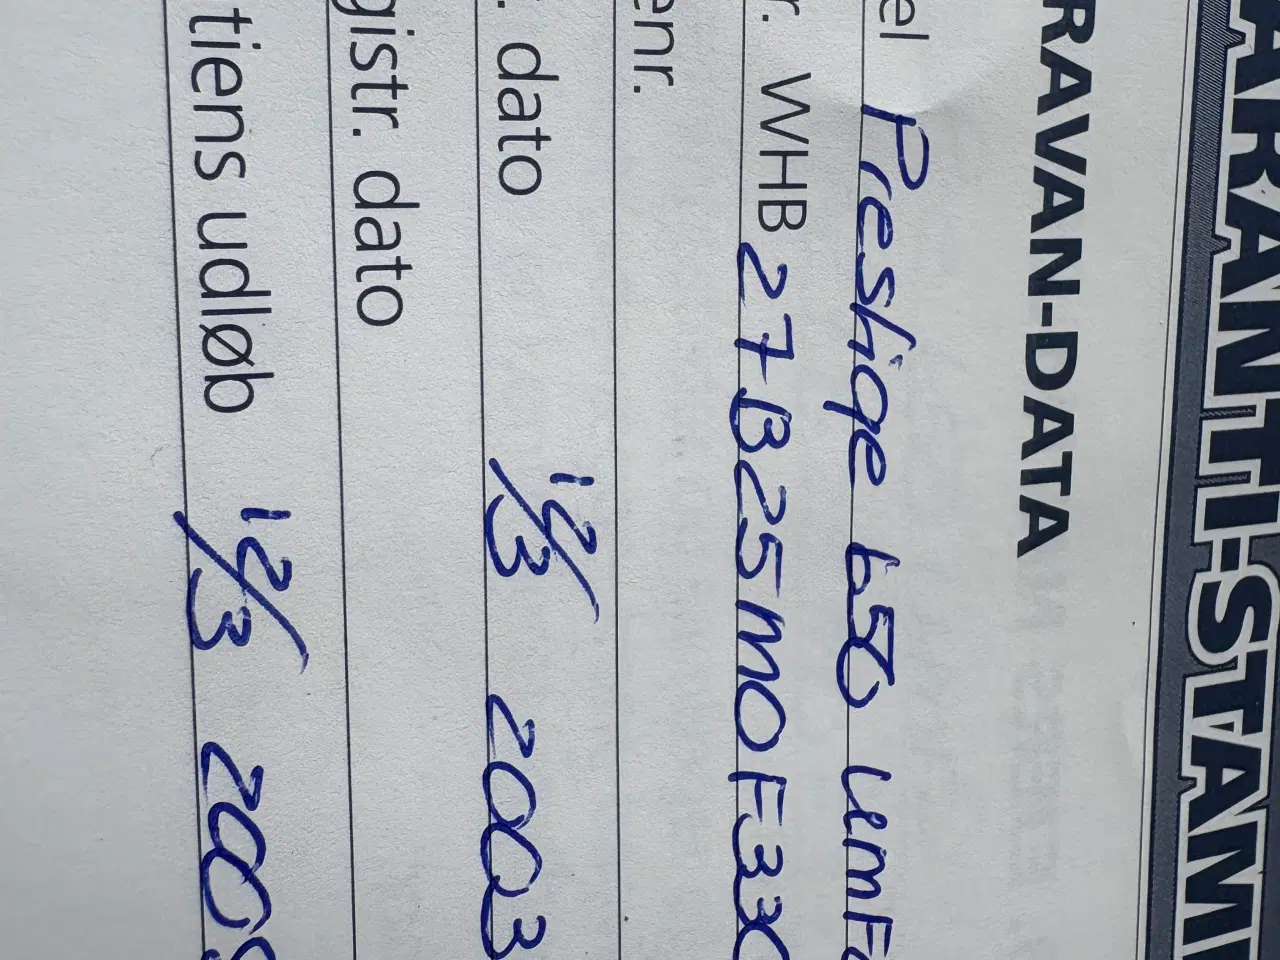 ARANTI-STAM
RAVAN-DATA
el Prestige 650 UMF
r. WHB 27B25M0F330
enr.
. dato 12/3 2003
gistr. dato
tiens udløb 12/3 200